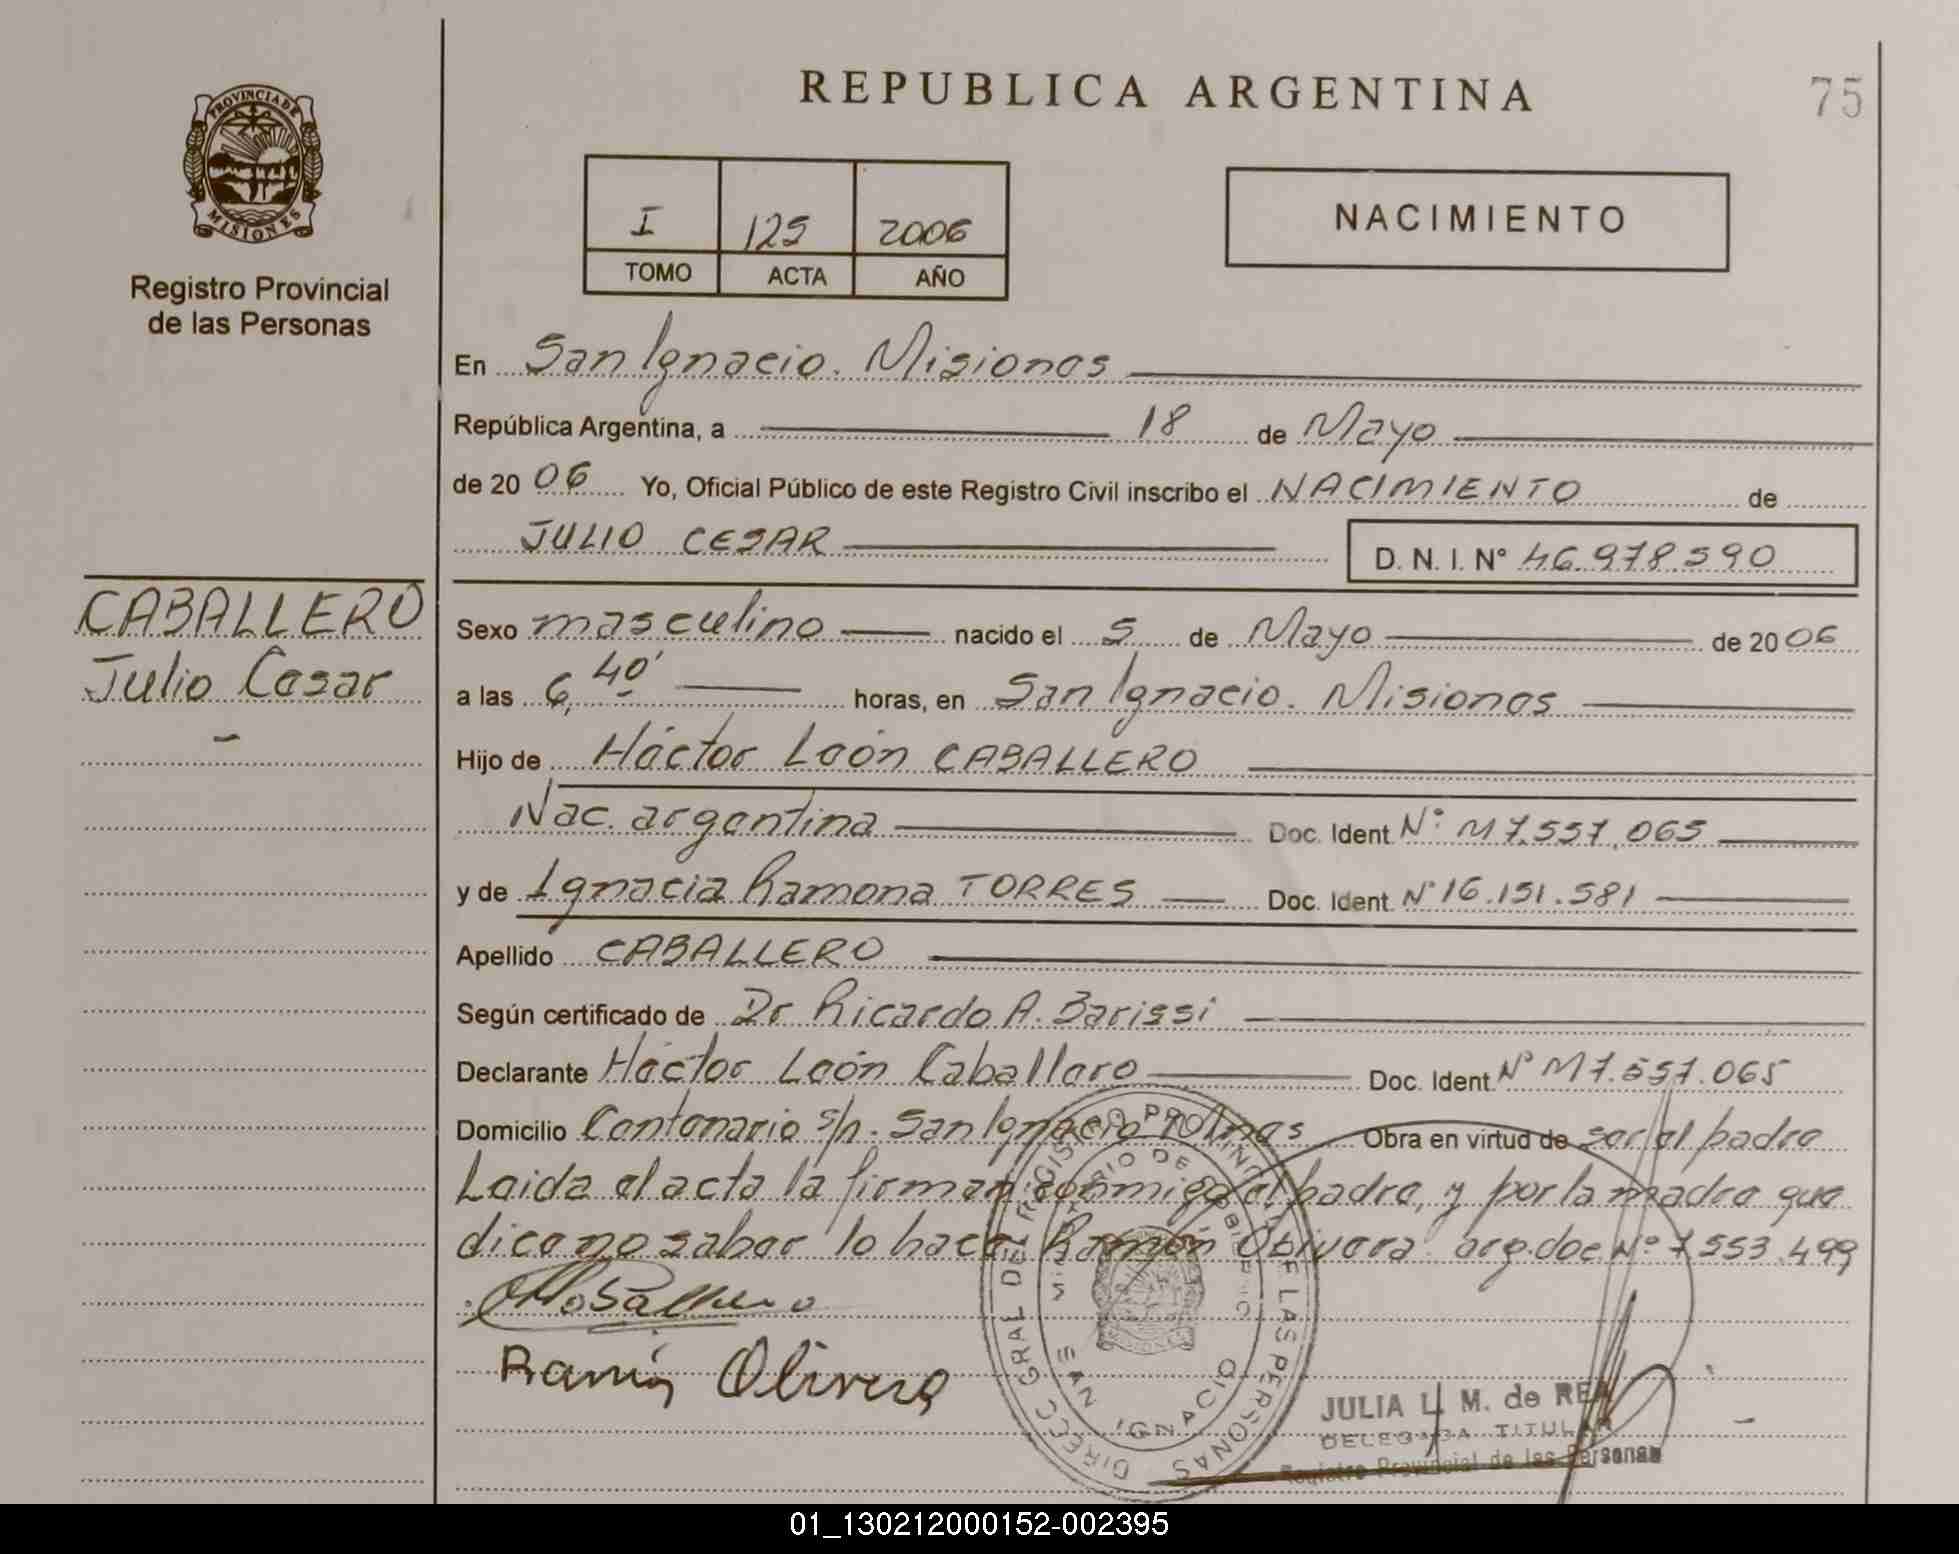 REPUBLICA ARGENTINA
75
PROVINCIA DE
MISIONES
Registro Provincial
de las Personas
I 125 2006
TOMO ACTA AÑO
NACIMIENTO
En San Ignacio. Misiones
República Argentina, a 18 de Mayo
de 20 06 Yo, Oficial Público de este Registro Civil inscribo el NACIMIENTO de
JULIO CESAR D. N. I. N° 46.978.590
CABALLERO
Julio Cesar
Sexo masculino nacido el 5 de Mayo de 20 06
a las 6,40' horas, en San Ignacio. Misiones
Hijo de Héctor León CABALLERO
Nac. argentina Doc. Ident. N° M7.557.065
y de Ignacia Ramona TORRES Doc. Ident. N° 16.151.581
Apellido CABALLERO
Según certificado de Dr Ricardo A. Barissi
Declarante Héctor León Caballero Doc. Ident. N° M7.557.065
Domicilio Centenario s/n. San Ignacio Mnes Obra en virtud de ser el padre
Leida el acta la firman conmigo el padre, y por la madre que
dice no saber lo hace Ramón Olivera arg. doc N° 7553.499
Caballero
Ramón Olivera
DIRECC GRAL DEL REGISTRO PROVINCIAL DE LAS PERSONAS
MINISTERIO DE GOBIERNO
SAN IGNACIO
JULIA L. M. de REA
DELEGADA TITULAR
Registro Provincial de las Personas
01_130212000152-002395